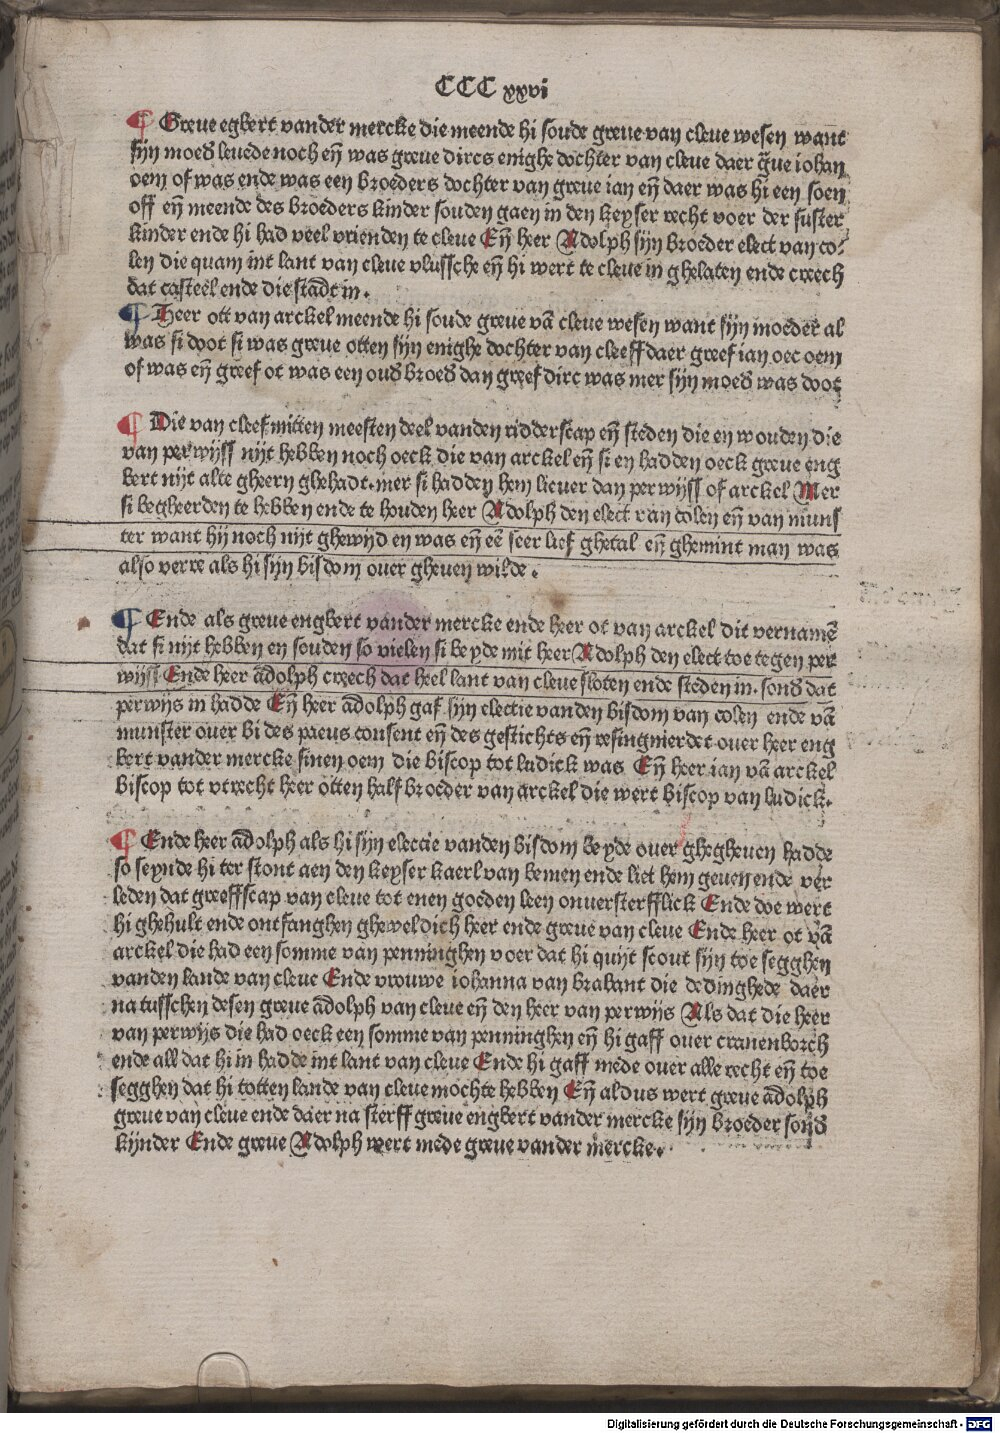 CCC xxvi
¶ Greue egbert vander mercke die meende hi soude greue van cleue wesen want
sijn moeđ leuede noch eñ was greue dircs enighe dochter van cleue daer g̃ue iohan
oem of was ende was een broeders dochter van greue ian eñ daer was hi een soen
off eñ meende des broeders kinder souden gaen in den keyser recht voer der suster
kinder ende hi had veel vrienden te cleue Eñ heer Adolph sijn broeder elect van co⸗
len die quam int lant van cleue vlussche eñ hi wert te cleue in ghelaten ende creech
dat casteel ende die stadt in.
¶ Heer ott van arckel meende hi soude greue vã cleue wesen want sijn moeder al
was si doot si was greue otten sijn enighe dochter van cleeff daer greef ian oec oem
of was eñ greef ot was een ouđ broeđ dan greef dirc was mer sijn moeđ was doot
¶ Die van cleef mitten meesten deel vanden ridderscap eñ steden die en wouden die
van perwijss nijt hebben noch oeck die van arckel eñ si en hadden oeck greue eng
bert nijt alte gheern ghehadt. mer si hadden hem lieuer dan perwijss of arckel Mer
si begheerden te hebben ende te houden heer Adolph den elect van colen eñ van muns
ter want hij noch nijt ghewijd en was eñ eẽ seer lief ghetal eñ ghemint man was
also verre als hi sijn bisdom ouer gheuen wilde.
¶ Ende als greue engbert vander mercke ende heer ot van arckel dit vernamẽ
dat si nijt hebben en souden so vielen si beyde mit heer Adolph den elect toe tegen per
wijss Ende heer adolph creech dat heel lant van cleue sloten ende steden in. sonđ dat
perwijs in hadde Eñ heer adolph gaf sijn electie vanden bisdom van colen ende vã
munster ouer bi des paeus consent eñ des gestichts eñ resingnierdet ouer heer eng
bert vander mercke sinen oem die biscop tot ludick was Eñ heer ian vã arckel
biscop tot vtrecht heer otten half broeder van arckel die wert biscop van ludick.
¶ Ende heer adolph als hi sijn electie vanden bisdom beyde ouer ghegheuen hadde
so seynde hi ter stont aen den keyser kaerl van bemen ende liet hem geuen ende ver
leden dat greeffscap van cleue tot enen goeden leen onuersterfflick Ende doe wert
hi ghehult ende ontfanghen gheweldich heer ende greue van cleue Ende heer ot vã
arckel die had een somme van penninghen voer dat hi quijt scout sijn toe segghen
vanden lande van cleue Ende vrouwe iohanna van brabant die dedinghede daer
na tusschen desen greue adolph van cleue eñ den heer van perwijs Als dat die heer
van perwijs die had oeck een somme van penninghen eñ hi gaff ouer cranenborch
ende all dat hi in hadde int lant van cleue Ende hi gaff mede ouer alle recht eñ toe
segghen dat hi totten lande van cleue mochte hebben Eñ aldus wert greue adolph
greue van cleue ende daer na sterff greue engbert vander mercke sijn broeder sonđ
kijnder Ende greue Adolph wert mede greue vander mercke.
Digitalisierung gefördert durch die Deutsche Forschungsgemeinschaft - DFG